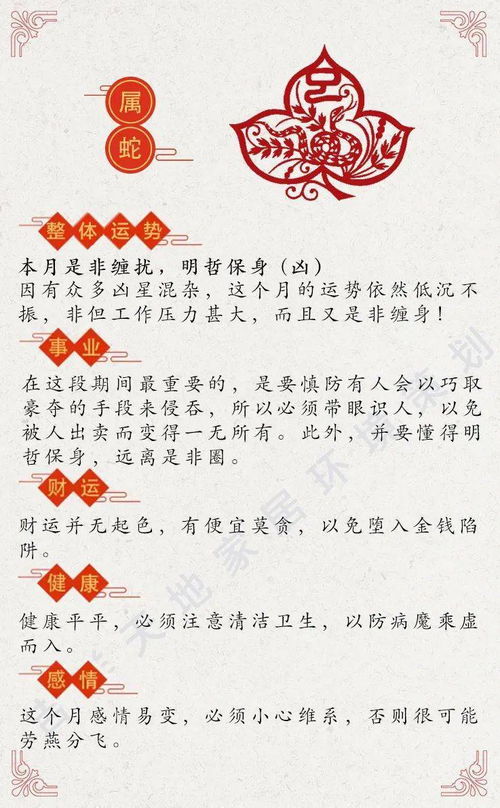 属
蛇
巳
整体运势
本月是非缠扰，明哲保身（凶）
因有众多凶星混杂，这个月的运势依然低沉不
振，非但工作压力甚大，而且又是非缠身！
事业
在这段期间最重要的，是要慎防有人会以巧取
豪夺的手段来侵吞，所以必须带眼识人，以免
被人出卖而变得一无所有。此外，并要懂得明
哲保身，远离是非圈。
财运
财运并无起色，有便宜莫贪，以免堕入金钱陷
阱。
健康
健康平平，必须注意清洁卫生，以防病魔乘虚
而入。
感情
这个月感情易变，必须小心维系，否则很可能
劳燕分飞。
天地家居环境策划